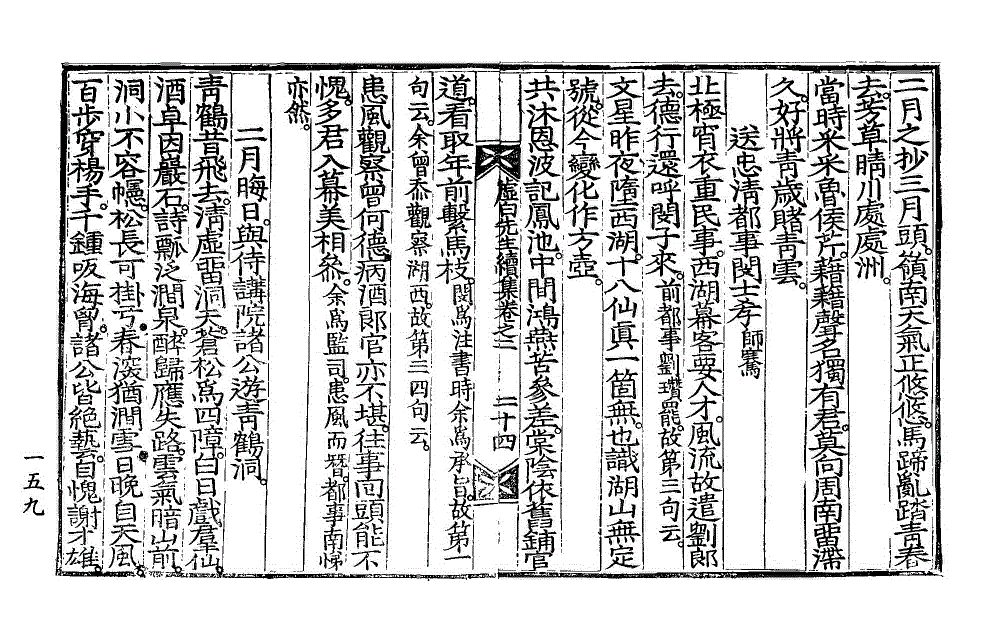 二月之抄三月頭。嶺南天氣正悠悠。馬蹄亂踏靑春
去。芳草晴川處處洲。
當時采采魯侯芹。藉藉聲名獨有君。莫向周南留滯
久。好將靑歲賭靑雲。
送忠淸都事閔士孝師騫
北極宵衣重民事。西湖幕客要人才。風流故遣劉郞
去。德行還呼閔子來。前都事劉瓚罷。故第三句云。
文星昨夜隋西湖。十八仙眞一箇無。也識湖山無定
號。從今變化作方壺。
共沐恩波記鳳池。中間鴻燕苦參差。棠陰依舊鋪官
虛白先生續集卷之二 二十四
道。看取年前繫馬枝。閔爲注書時。余爲承旨。故第一
句云。余曾忝觀察湖西。故第三四句云。
患風觀察曾何德。病酒郞官亦不堪。往事回頭能不
愧。多君入幕美相參。余爲監司。患風而簪。都事南悌
亦然。
二月晦日。與侍講院諸公遊靑鶴洞。
靑鶴昔飛去。淸虛留洞天。蒼松爲四障。白日戲羣仙。
酒卓因巖石。詩瓢泛澗泉。醉歸應失路。雲氣暗山前。
洞小不容幰。松長可掛弓。春深猶澗雪。日晚自天風。
百步穿楊手。千鍾吸海胷。諸公皆絶藝。自愧謝才雄。
一五九